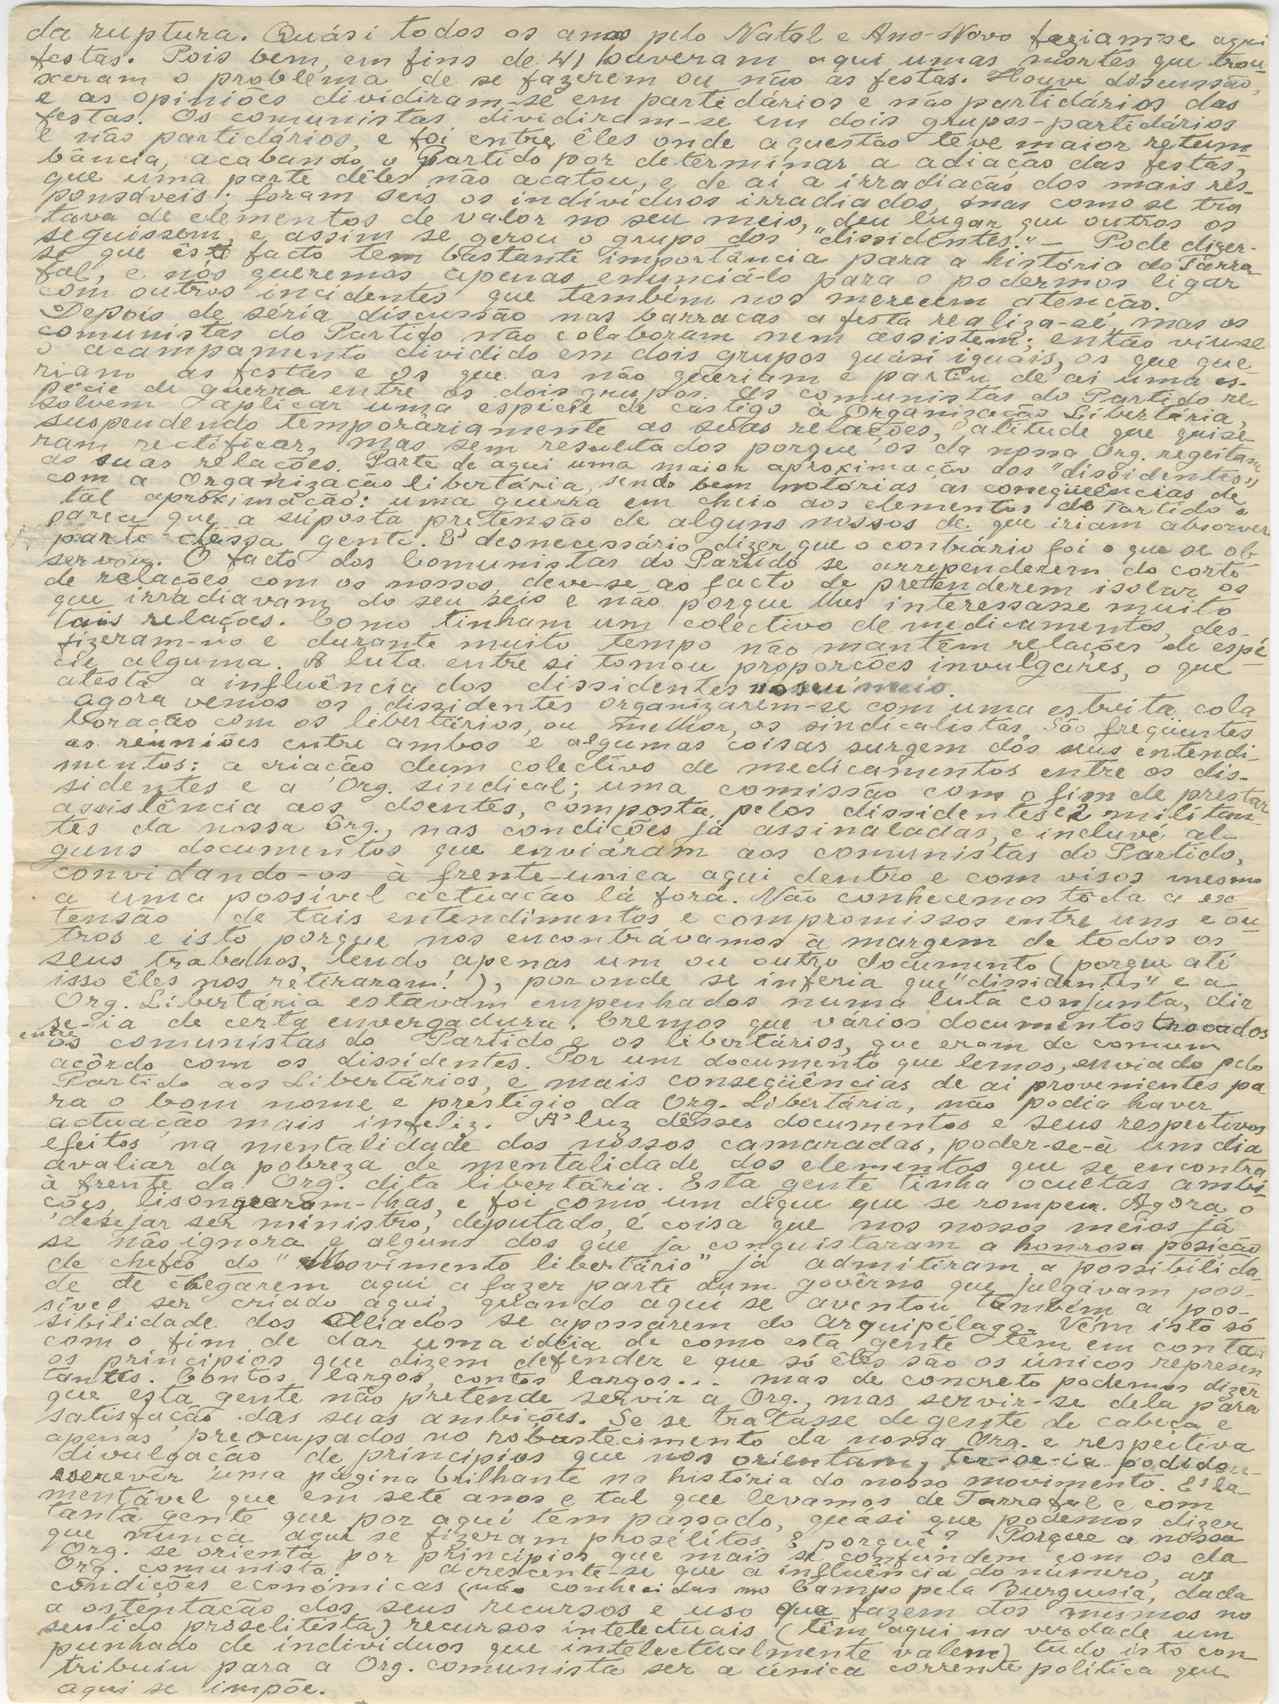 da ruptura. Quási todos os anos pelo Natal e Ano-Novo faziam-se aqui
festas. Pois bem, em fins de 41 houveram aqui umas mortes que trou-
xeram o problema de se fazerem ou não as festas. Houve discussão,
e as opiniões dividiram-se em partidários e não partidários das
festas. Os comunistas dividiram-se em dois grupos-partidários
e não partidários, e foi entre êles onde a questão teve maior retum
bância, acabando o Partido por determinar a adiação das festas,
que uma parte dêles não acatou, e de aí a irradiação dos mais res-
ponsáveis; foram seis os indivíduos irradiados, mas como se tra
tava de elementos de valor no seu meio, deu lugar que outros os
seguissem, e assim se gerou o grupo dos "dissidentes". — Pode dizer-
se que êste facto tem bastante importância para a história do Tarra
fal, e nós queremos apenas enunciá-lo para o podermos ligar
com outros incidentes que também nos merecem atenção.
Depois de séria discussão nas barracas a festa realiza-se, mas os
comunistas do Partido não colaboram nem assistem; então viu-se
o acampamento dividido em dois grupos quási iguais, os que que-
riam as festas e os que as não queriam e partiu de aí uma es-
pécie de guerra entre os dois grupos. Os comunistas do Partido re-
solvem aplicar uma espécie de castigo à Organização Libertária,
suspendendo temporáriamente as suas relações, atitude que quise-
ram rectificar, mas sem resultados porque os da nossa Org. regeitam
as suas relações. Parte de aqui uma maior aproximação dos "dissidentes"
com a Organização libertária, sendo bem notórias as conseqüências de
tal aproximação: uma guerra em cheio aos elementos do Partido e
parece que a suposta pretensão de alguns nossos de que iriam absorver
parte dessa gente. E' desnecessário dizer que o contrário foi o que se ob
servou. O facto dos Comunistas do Partido se arrependerem do corte
de relações com os nossos deve-se ao facto de pretenderem isolar os
que irradiavam do seu seio e não porque lhes interessasse muito
tais relações. Como tinham um coléctivo de medicamentos, des-
fizeram-no e durante muito tempo não mantêm relações de espé-
cie alguma. A luta entre si tomou proporções invulgares, o que
atesta a influência dos dissidentes no seu meio.
agora vemos os dissidentes organizarem-se com uma estreita cola
boração com os libertários, ou melhor, os sindicalistas. São freqüentes
as reüniões entre ambos e algumas coisas surgem dos seus entendi-
mentos: a criação dum colectivo de medicamentos entre os dis-
sidentes e a Org. sindical; uma comissão com o fim de prestar
assistência aos doentes, composta pelos dissidentes e 2 militan-
tes da nossa Org., nas condições já assinaladas, e inclué al-
guns documentos que enviáram aos comunistas do Partido,
convidando-os à frente-única aqui dentro e com visos mesmo
a uma possível actuação lá fora. Não conhecemos tôda a ex
tensão de tais entendimentos e compromissos entre uns e ou
tros e isto porque nos encontrávamos à margem de todos os
seus trabalhos, lendo apenas um ou outro documento (porque até
isso êles nos retiraram!), por onde se inferia que "dissidentes" e a
Org. Libertária estavam empenhados numa luta conjunta, dir
se-ia de certa envergadura. Cremos que vários documentos trocados
entre
os comunistas do Partido e os libertários, que eram de comum
acôrdo com os dissidentes. Por um documento que lemos, enviado pelo
Partido aos Libertários, e mais conseqüências de ai provenientes pa
ra o bom nome e prestígio da Org. Libertária, não podia haver
actuação mais infeliz. A' luz dêsses documentos e seus respectivos
efeitos na mentalidade dos nossos camaradas, poder-se-á um dia
avaliar da pobreza de mentalidade dos elementos que se encontra
à frente da Org. dita libertária. Esta gente tinha ocultas ambi-
ções, lisongearam-lhas, e foi como um dique que se rompeu. Agora o
desejar ser ministro, deputado, é coisa que nos nossos meios já
se não ignora e alguns dos que já conquistaram a honrosa posição
de chefes do "Movimento libertário" já admitiram a possibilida
de de chegarem aqui a fazer parte dum govêrno que julgávam pos-
sível ser criado aqui, quando aqui se aventou também a pos-
sibilidade dos Aliados se apossárem do arquipélago. Vêm isto só
com o fim de dar uma idéia de como esta gente têm em conta
os princípios que dizem defender e que só êles são os únicos represen
tantes. Contos largos, contos largos... mas de concreto podemos dizer
que esta gente não pretende servir a Org., mas servir-se dela para
satisfação das suas ambições. Se se tratasse de gente de cabeça e
apenas preocupados no robustecimento da nossa Org. e respectiva
divulgação de princípios que nos orientam, ter-se-ia podido
escrever uma página brilhante na história do nosso movimento. E' la-
mentável que em sete anos e tal que levamos de Tarrafal e com
tanta gente que por aqui tem passado, quási que podemos dizer
que nunca aqui se fizeram prosélitos. E porquê? Porque a nossa
Org. se orienta por princípios que mais se confundem com os da
Org. comunista. Acrescente-se que a influência do número, as
condições económicas (não conhecidas no Campo pela Burguesia, dada
a ostentação dos seus recursos e uso que fazem dos mesmos no
sentido proselitista) recursos intelectuais (têm aqui na verdade um
punhado de indivíduos que intelectualmente valem) tudo isto con
tribuiu para a Org. comunista ser a única corrente política que
aqui se impõe.